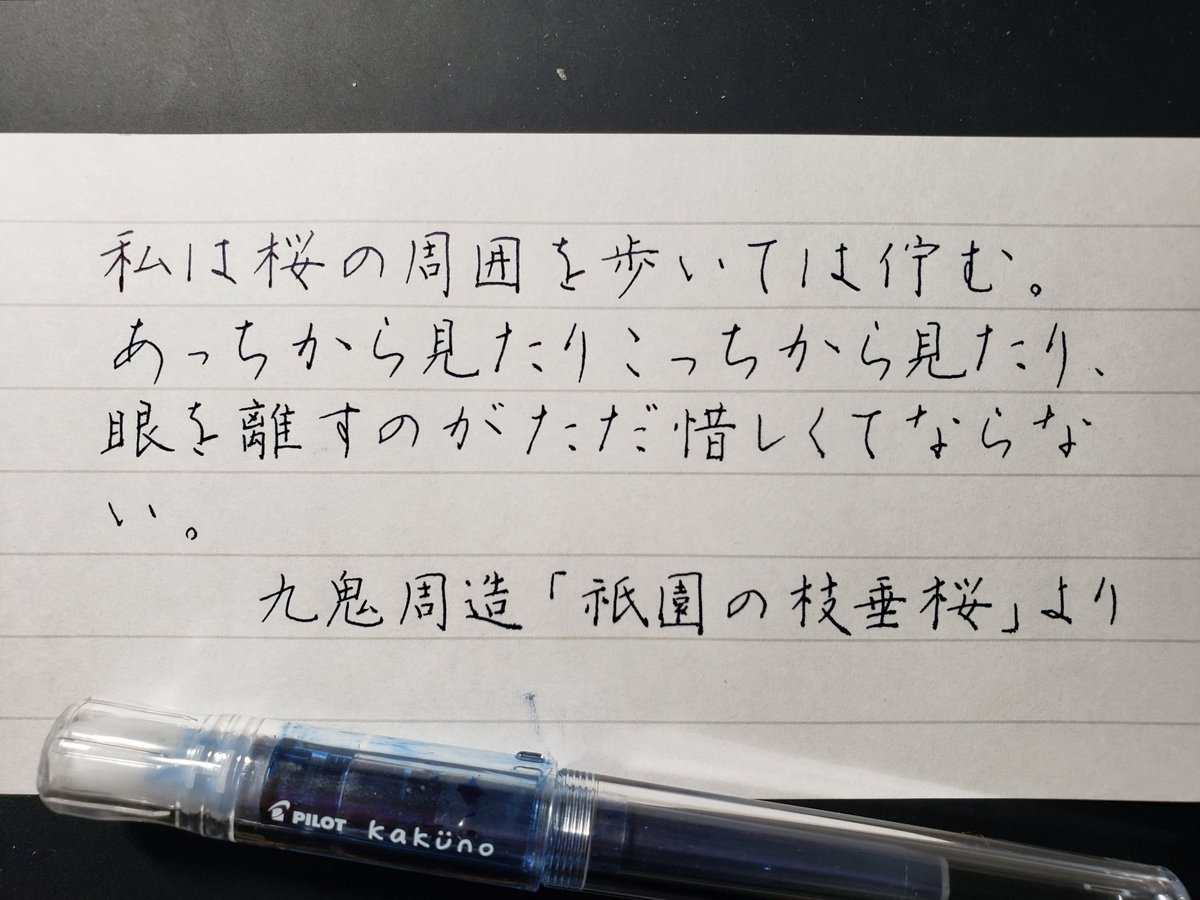 私は桜の周囲を歩いては佇む。
あっちから見たりこっちから見たり、
眼を離すのがただ惜しくてならな
い。
九鬼周造「祇園の枝垂桜」より
PILOT kaküno